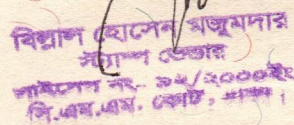 বিল্লাল হোসেন মজুমদার
স্ট্যাম্প ভেন্ডার
লাইসেন্স নং- ১২/২০০০ইং
সি.এম.এম. কোর্ট, ঢাকা।